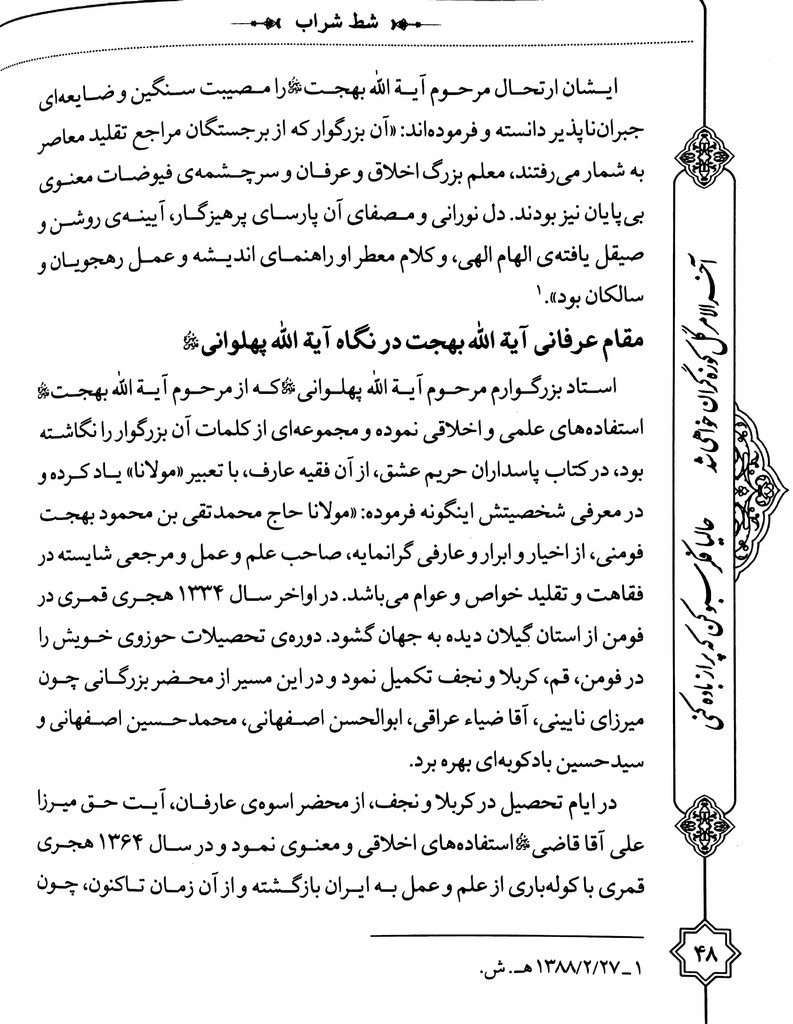 شط شراب
ایشان ارتحال مرحوم آیة الله بهجت را مصیبت سنگین و ضایعه‌ای
جبران‌ناپذیر دانسته و فرموده‌اند: «آن بزرگوار که از برجستگان مراجع تقلید معاصر
به شمار می‌رفتند، معلم بزرگ اخلاق و عرفان و سرچشمه‌ی فیوضات معنوی
بی‌پایان نیز بودند. دل نورانی و مصفای آن پارسای پرهیزگار، آیینه‌ی روشن و
صیقل یافته‌ی الهام الهی، و کلام معطر او راهنمای اندیشه و عمل رهجویان و
سالکان بود».۱
مقام عرفانی آیة الله بهجت در نگاه آیة الله پهلوانی
استاد بزرگوارم مرحوم آیة الله پهلوانی که از مرحوم آیة الله بهجت
استفاده‌های علمی و اخلاقی نموده و مجموعه‌ای از کلمات آن بزرگوار را نگاشته
بود، در کتاب پاسداران حریم عشق، از آن فقیه عارف، با تعبیر «مولانا» یاد کرده و
در معرفی شخصیتش اینگونه فرموده: «مولانا حاج محمدتقی بن محمود بهجت
فومنی، از اخیار و ابرار و عارفی گرانمایه، صاحب علم و عمل و مرجعی شایسته در
فقاهت و تقلید خواص و عوام می‌باشد. در اواخر سال ۱۳۳۴ هجری قمری در
فومن از استان گیلان دیده به جهان گشود. دوره‌ی تحصیلات حوزوی خویش را
در فومن، قم، کربلا و نجف تکمیل نمود و در این مسیر از محضر بزرگانی چون
میرزای نایینی، آقا ضیاء عراقی، ابوالحسن اصفهانی، محمدحسین اصفهانی و
سیدحسین بادکوبه‌ای بهره برد.
در ایام تحصیل در کربلا و نجف، از محضر اسوه‌ی عارفان، آیت حق میرزا
علی آقا قاضی استفاده‌های اخلاقی و معنوی نمود و در سال ۱۳۶۴ هجری
قمری با کوله‌باری از علم و عمل به ایران بازگشته و از آن زمان تاکنون، چون
۱ـ ۱۳۸۸/۲/۲۷ هـ. ش.
آخر الامر گل کوزه گران خواهی شد
حالیا فکر سبو کن که پر از باده کنی
۴۸